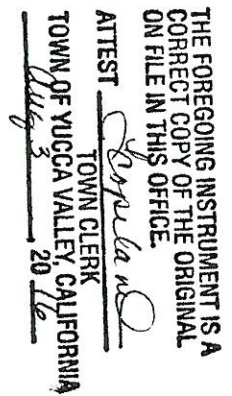 THE FOREGOING INSTRUMENT IS A
CORRECT COPY OF THE ORIGINAL
ON FILE IN THIS OFFICE.
ATTEST
TOWN CLERK
TOWN OF YUCCA VALLEY, CALIFORNIA
Aug 3, 2016